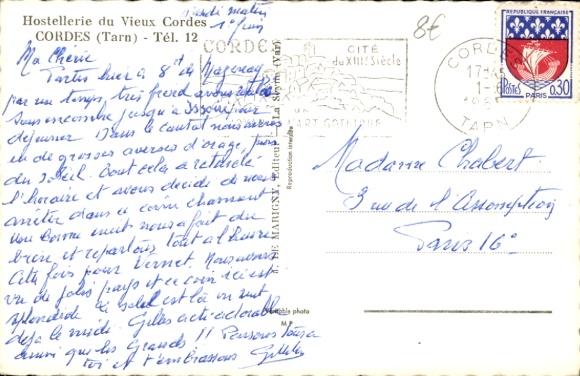 Hostellerie du Vieux Cordes
CORDES (Tarn) - Tél. 12
mardi matin
1er Juin
Ma Chérie
Partis hier à 8h de
par un temps très froid avons
sans encombre jusqu'à Issoire pour
déjeuner. Dans le cantal nous avons
eu de grosses averses d'orage, puis
du soleil. Tout cela a retardé
l'horaire et avons décidé de nous
arrêter dans ce coin charmant
Une bonne nuit nous a fait du
bien, et repartons tout à l'heure
cette fois pour Vernet. Nous avons
vu de jolis pays et ce coin ici est
splendide le soleil est là on sent
déjà le midi. Gilles est adorable
ainsi que les grands!! Pensons tous à
toi et t'embrassons
J. DE MARIGNY, Editeur - La Seyne (Var)
Reproduction interdite
photo
8€
CORDES
CITÉ
du XIIIe Siècle
ART GOTHIQUE
CORDES
17H
1-6
TARN
REPUBLIQUE FRANÇAISE
POSTES
0,30
PARIS
Madame Chabert
3 rue de l'Assomption
Paris 16e